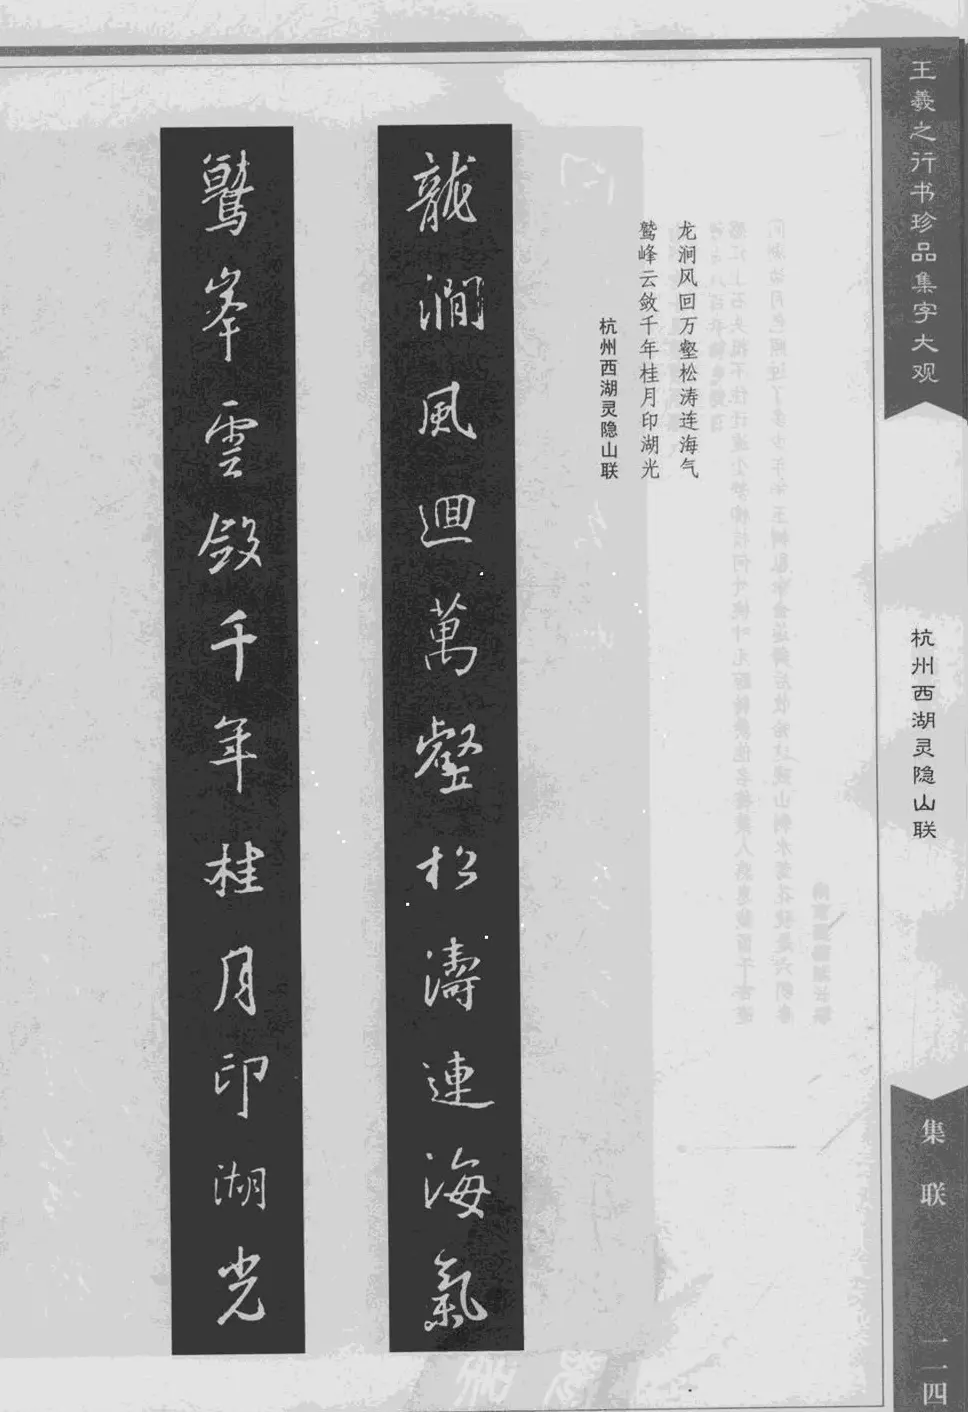 王羲之行书珍品集字大观
杭州西湖灵隐山联
集联
一一四
龙涧风回万壑松涛连海气
鹫峰云敛千年桂月印湖光
杭州西湖灵隐山联
龍澗風迴萬壑松濤連海氣
鷲峯雲斂千年桂月印湖光